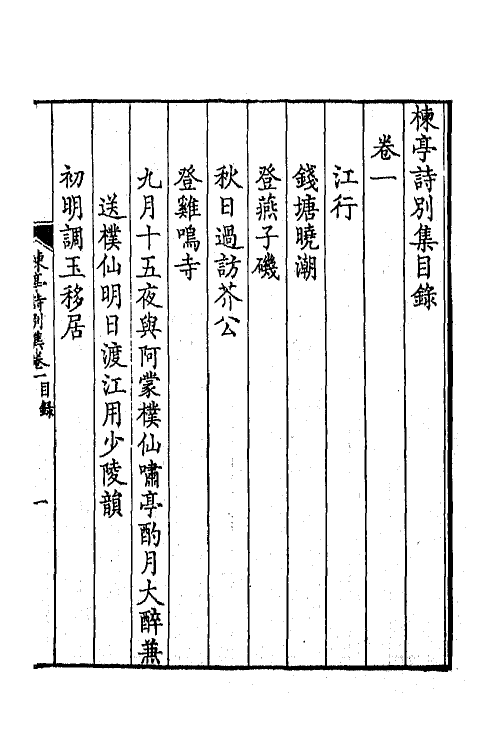 楝亭詩別集目錄
卷一
江行
錢塘曉潮
登燕子磯
秋日過訪芥公
登雞鳴寺
九月十五夜與阿蒙樸仙嘯亭酌月大醉兼
送樸仙明日渡江用少陵韻
初明調玉移居
楝亭詩別集卷一目錄
一